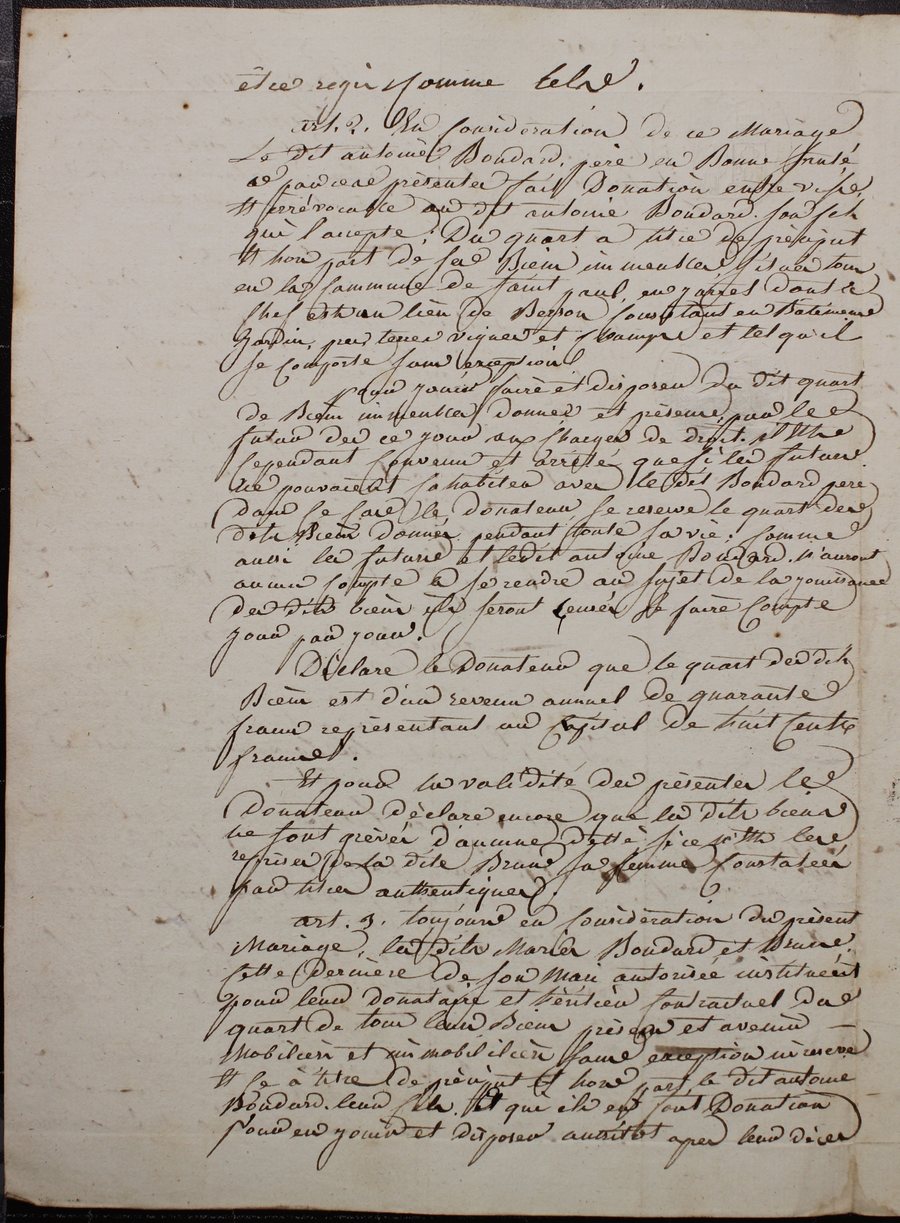 être regis Comme tels.
art. 2. En Considération de ce Mariage
Le dit antoine Boudard, père en Bonne Santé
a par ces présentes fait Donation entre vifs
Et irrévocable au dit antoine Boudard son fils
qui l'accepte, Du quart a titre de préciput
Et hors part de ses Biens immeubles situés tous
en la Commune de saint paul en Jarrel dont le
Chef est au lieu de Consistant en Batiments
Jardin, pré terres vignes et Champs et tel qu'il
se Comporte sans exception
Pour jouir faire et disposer du dit quart
de Biens immeubles donnés et présents, par le
futur des ce jour aux charges de droit. Il Est
Cependant Convenu et arrêté que si les futurs
ne pouvaient avec le dit Boudard père
dans ce Cas le donateur se reserve le quart des
dits Biens donnés pendant toute sa vie; Comme
aussi les futurs et ledit antoine Boudard n'auront
aucun Compte a se rendre au sujet de la jouissance
des dits biens ils seront Censés se faire Compte
jour par jour.
Déclare le Donateur que le quart des dits
Biens est d'un revenu annuel de quarante
francs représentant un Capital de huit Cents
francs.
Et pour la validité des présentes le
Donateur déclare encore que les dits biens
ne sont grèvés d'aucune dette si ce n'Est les
reprises de la dite Brun sa femme Constatées
par titres authentiques.
art. 3. toujours en Considération du présent
Mariage, les dits Mariés Boudard et Brun,
Cette Dernière de son Mari autorisée instituent
pour leur donataire et héritier Contractuel du
quart de tous leurs Biens présens et avenir —
Mobiliers et immobiliers sans exception ni reserve
Et Ce à titre de préciput Et hors part le dit antoine
Boudard leur fils. Et qui ils en font Donation
Pour en jouir et disposer aussitôt apres leur décès